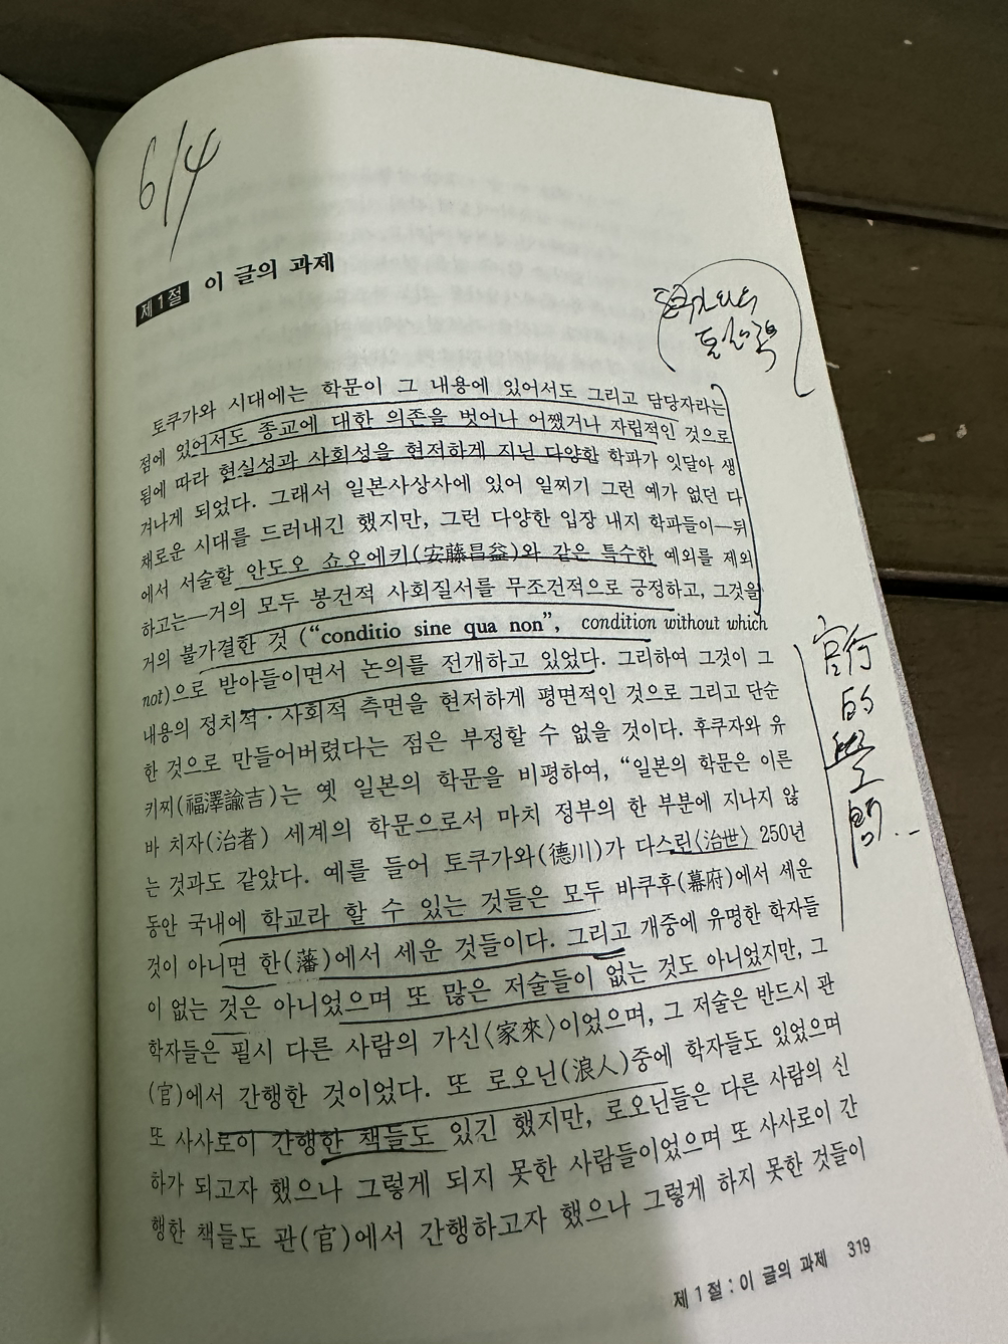 6/4
제1절 이 글의 과제
토쿠가와 시대에는 학문이 그 내용에 있어서도 그리고 담당자라는
점에 있어서도 종교에 대한 의존을 벗어나 어쨌거나 자립적인 것으로
됨에 따라 현실성과 사회성을 현저하게 지닌 다양한 학파가 잇달아 생
겨나게 되었다. 그래서 일본사상사에 있어 일찌기 그런 예가 없던 다
채로운 시대를 드러내긴 했지만, 그런 다양한 입장 내지 학파들이—뒤
에서 서술할 안도오 쇼오에키(安藤昌益)와 같은 특수한 예외를 제외
하고는—거의 모두 봉건적 사회질서를 무조건적으로 긍정하고, 그것을
거의 불가결한 것 (“conditio sine qua non”, condition without which
not)으로 받아들이면서 논의를 전개하고 있었다. 그리하여 그것이 그
내용의 정치적·사회적 측면을 현저하게 평면적인 것으로 그리고 단순
한 것으로 만들어버렸다는 점은 부정할 수 없을 것이다. 후쿠자와 유
키찌(福澤諭吉)는 옛 일본의 학문을 비평하여, “일본의 학문은 이른
바 치자(治者) 세계의 학문으로서 마치 정부의 한 부분에 지나지 않
는 것과도 같았다. 예를 들어 토쿠가와(德川)가 다스린〈治世〉 250년
동안 국내에 학교라 할 수 있는 것들은 모두 바쿠후(幕府)에서 세운
것이 아니면 한(藩)에서 세운 것들이다. 그리고 개중에 유명한 학자들
이 없는 것은 아니었으며 또 많은 저술들이 없는 것도 아니었지만, 그
학자들은 필시 다른 사람의 가신〈家來〉이었으며, 그 저술은 반드시 관
(官)에서 간행한 것이었다. 또 로오닌(浪人)중에 학자들도 있었으며
또 사사로이 간행한 책들도 있긴 했지만, 로오닌들은 다른 사람의 신
하가 되고자 했으나 그렇게 되지 못한 사람들이었으며 또 사사로이 간
행한 책들도 관(官)에서 간행하고자 했으나 그렇게 하지 못한 것들이
官行
的
學
問
제1절 : 이 글의 과제 319